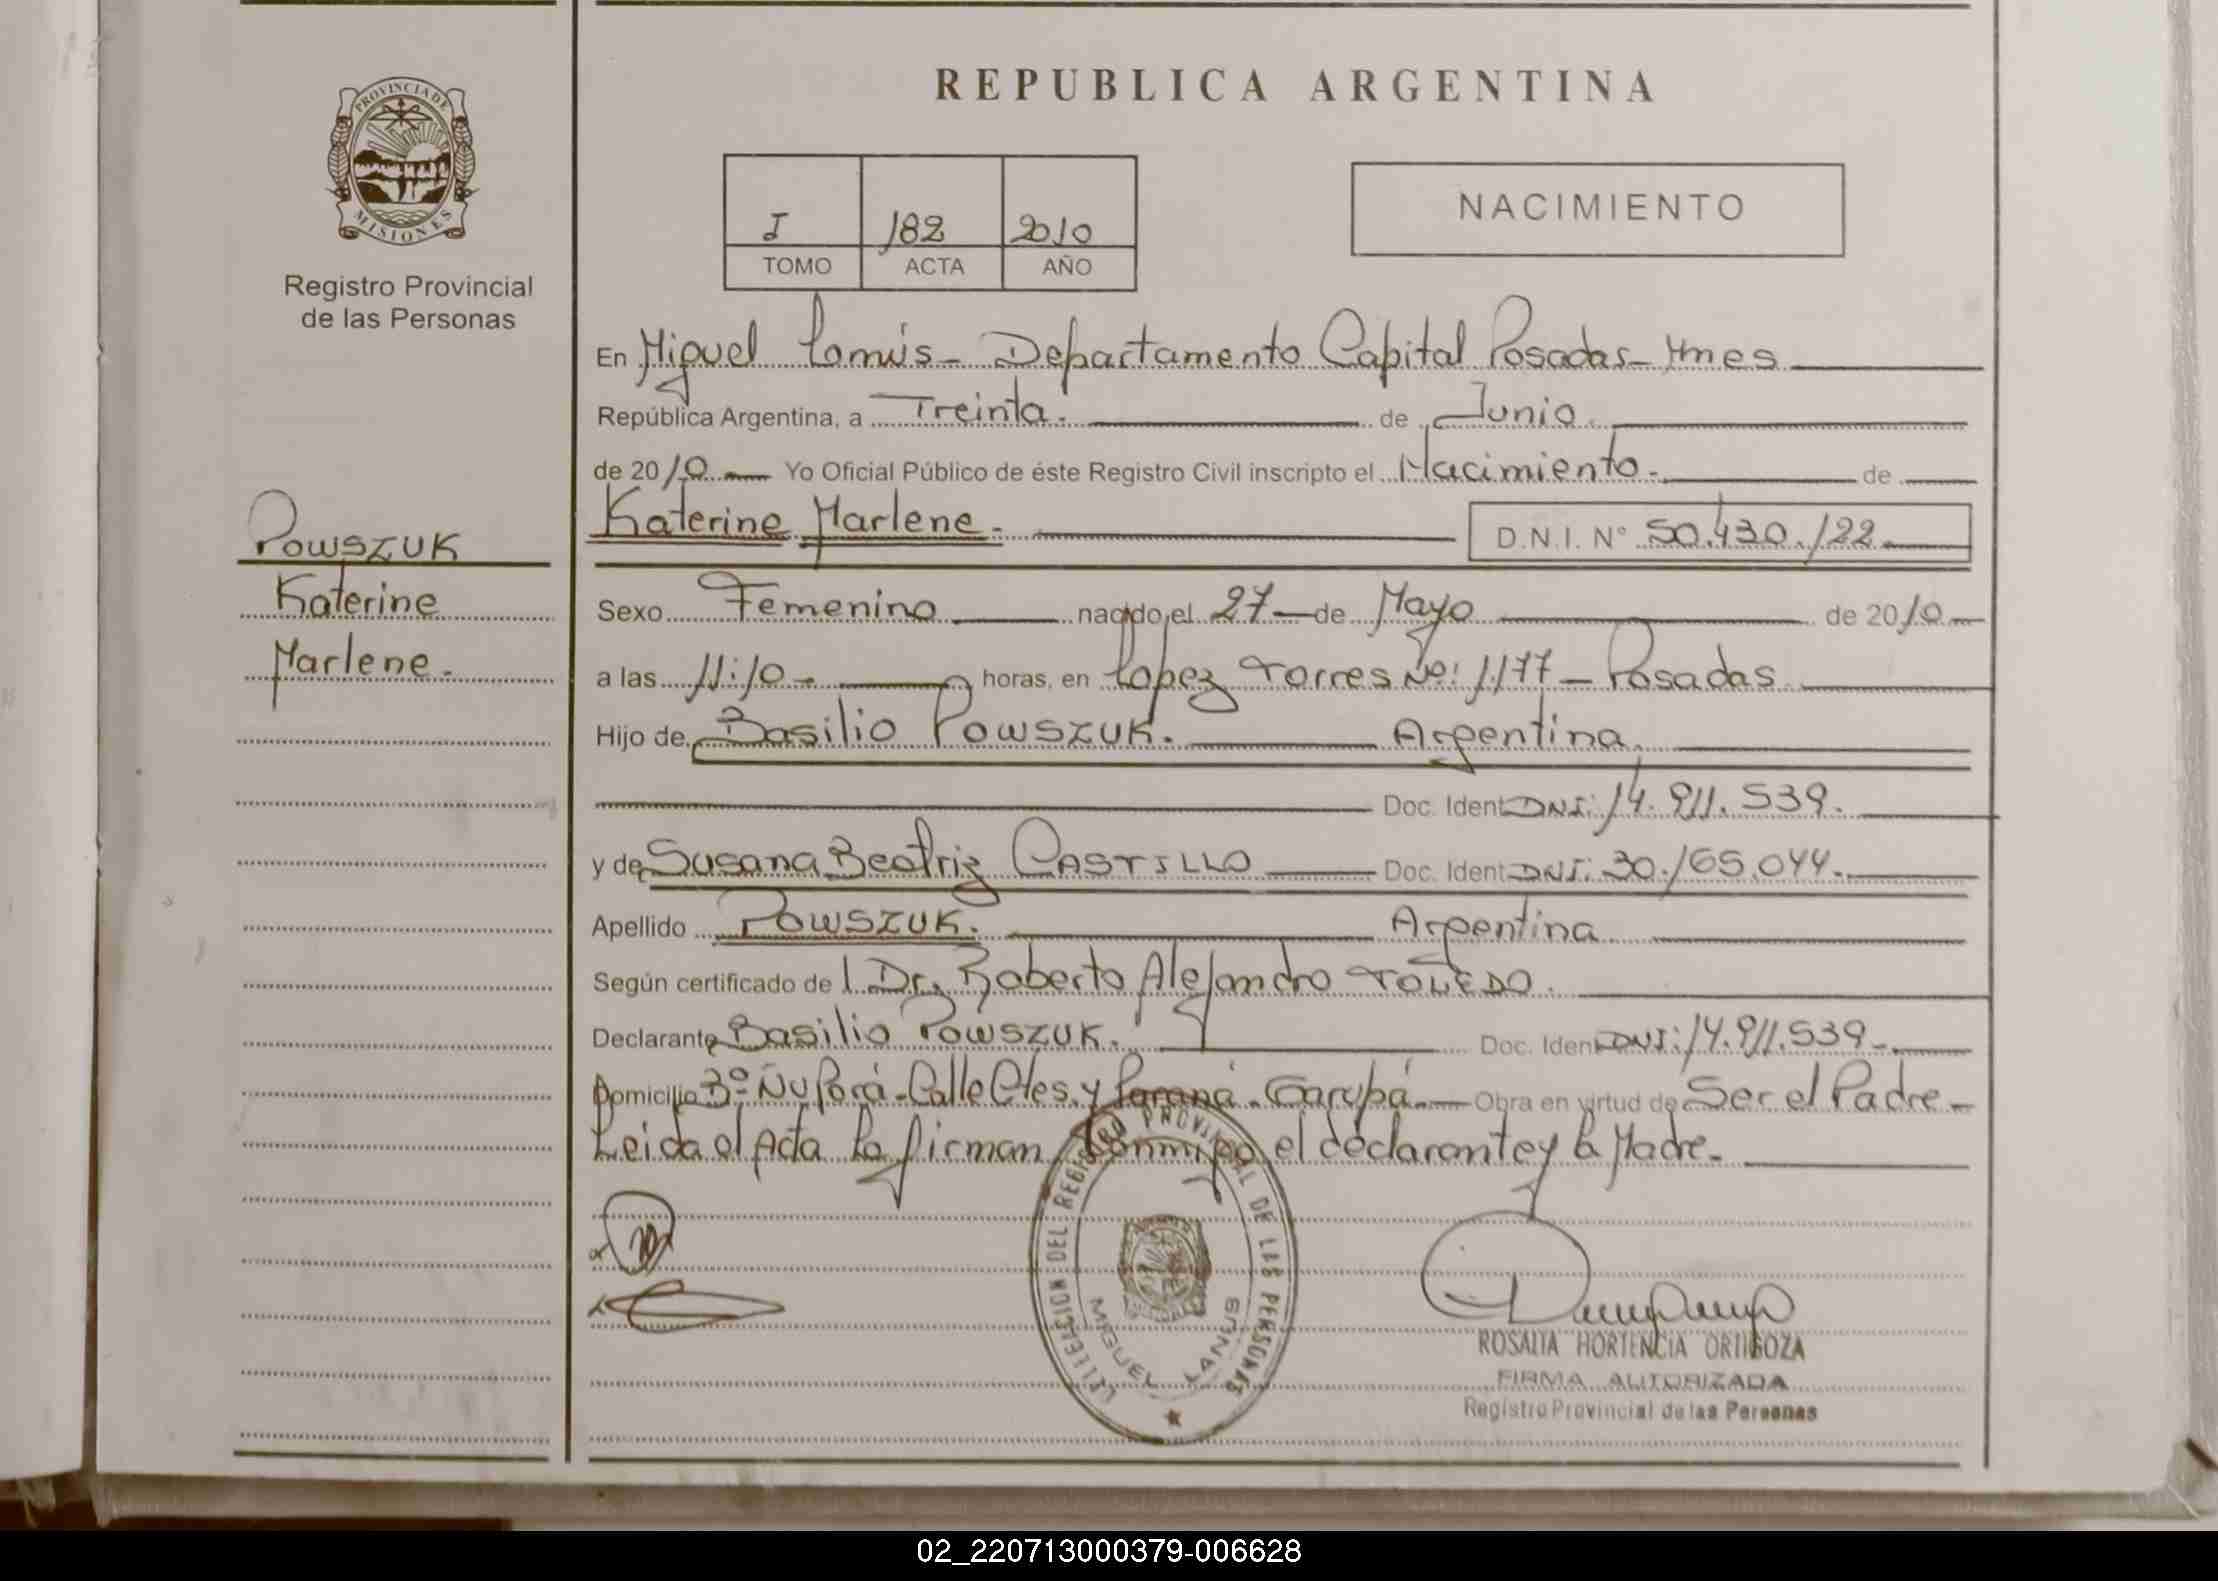 REPUBLICA ARGENTINA
PROVINCIA DE
MISIONES
Registro Provincial
de las Personas
I 182 2010
TOMO ACTA AÑO
NACIMIENTO
En Miguel Lanus - Departamento Capital Posadas - Mnes
República Argentina, a Treinta. de Junio
de 2010 Yo Oficial Público de éste Registro Civil inscripto el Nacimiento. de
POWSZUK
Katerine
Marlene.
Katerine Marlene. D.N.I. Nº 50.430.122
Sexo Femenino nacido el 27 de Mayo de 2010
a las 11:10 horas, en Lopez Torres Nº: 1177 - Posadas
Hijo de Basilio POWSZUK. Argentina
Doc. Ident DNI: 14.911.539.
y de Susana Beatriz CASTILLO Doc. Ident DNI: 30.165.044.
Apellido POWSZUK. Argentina
Según certificado de l Dr. Roberto Alejandro TOLEDO.
Declarante Basilio POWSZUK. Doc. Ident DNI: 14.911.539
Domicilio Bº Ñu Porá - Calle Ctes. y Paraná - Garupá. Obra en virtud de Ser el Padre
Leida el Acta la firman Conmigo el declarante y la Madre.
DEL REGISTRO PROVINCIAL DE LAS PERSONAS
MIGUEL LANUS
ROSALIA HORTENCIA ORTIGOZA
FIRMA AUTORIZADA
Registro Provincial de las Personas
02_220713000379-006628